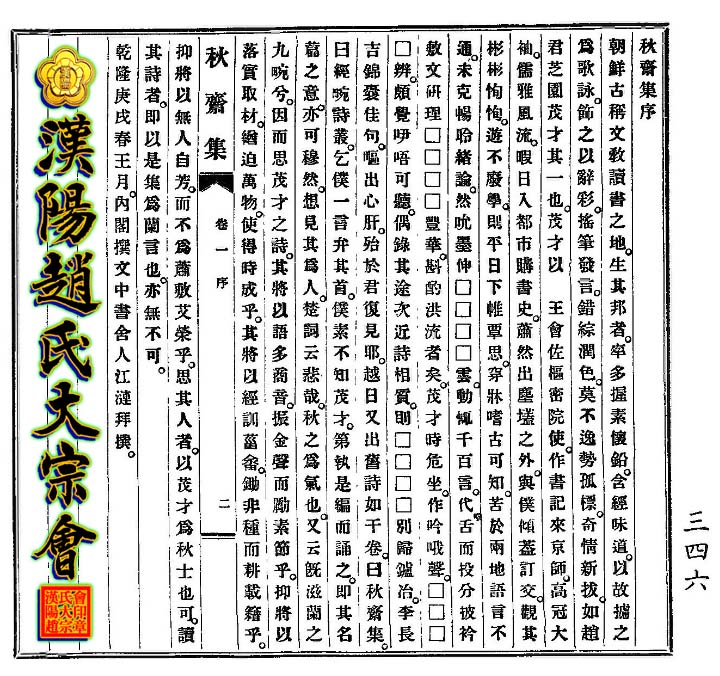 秋齋集序
朝鮮古稱文敎讀書之地。生其邦者。率多握素懷鉛。含經味道。以故攄之
爲歌詠。飾之以辭彩。搖筆發言。錯綜潤色。莫不逸勢孤標。奇情新拔。如趙
君芝園茂才其一也。茂才以 王會佐樞密院使。作書記來京師。高冠大
袖。儒雅風流。暇日入都市購書史。蕭然出塵壒之外。與僕傾蓋訂交。觀其
彬彬恂恂。遊不廢學。則平日下帷覃思。穿牀嗜古可知。苦於兩地語言不
通。未克暢聆緖論。然吮墨伸□□□□雲動。輒千百言。代舌而投分披衿
敷文硏理□□□□豐華。斟酌洪流者矣。茂才時危坐。作吟哦聲。□□□
□辨。頗覺咿唔可聽。偶錄其途次近詩相質。則□□□□別歸鑪冶。李長
吉錦囊佳句。嘔出心肝。殆於君復見耶。越日又出舊詩如干卷。曰秋齋集。
曰經畹詩叢。乞僕一言弁其首。僕素不知茂才。第執是編而誦之。卽其名
篇之意。亦可穆然想見其爲人。楚詞云悲哉。秋之爲氣也。又云旣滋蘭之
九畹兮。因而思茂才之詩。其將以語多商音。振金聲而勵素節乎。抑將以
落實取材。緧迫萬物。使得時成乎。其將以經訓菑畬。鋤非種而耕載籍乎。
秋齋集
卷一 序
二
抑將以無人自芳。而不爲蕭敷艾榮乎。思其人者。以茂才爲秋士也可。讀
其詩者。卽以是集爲蘭言也。亦無不可。
乾隆庚戌春王月。內閣撰文中書舍人江漣拜撰。
漢陽趙氏大宗會
三四六